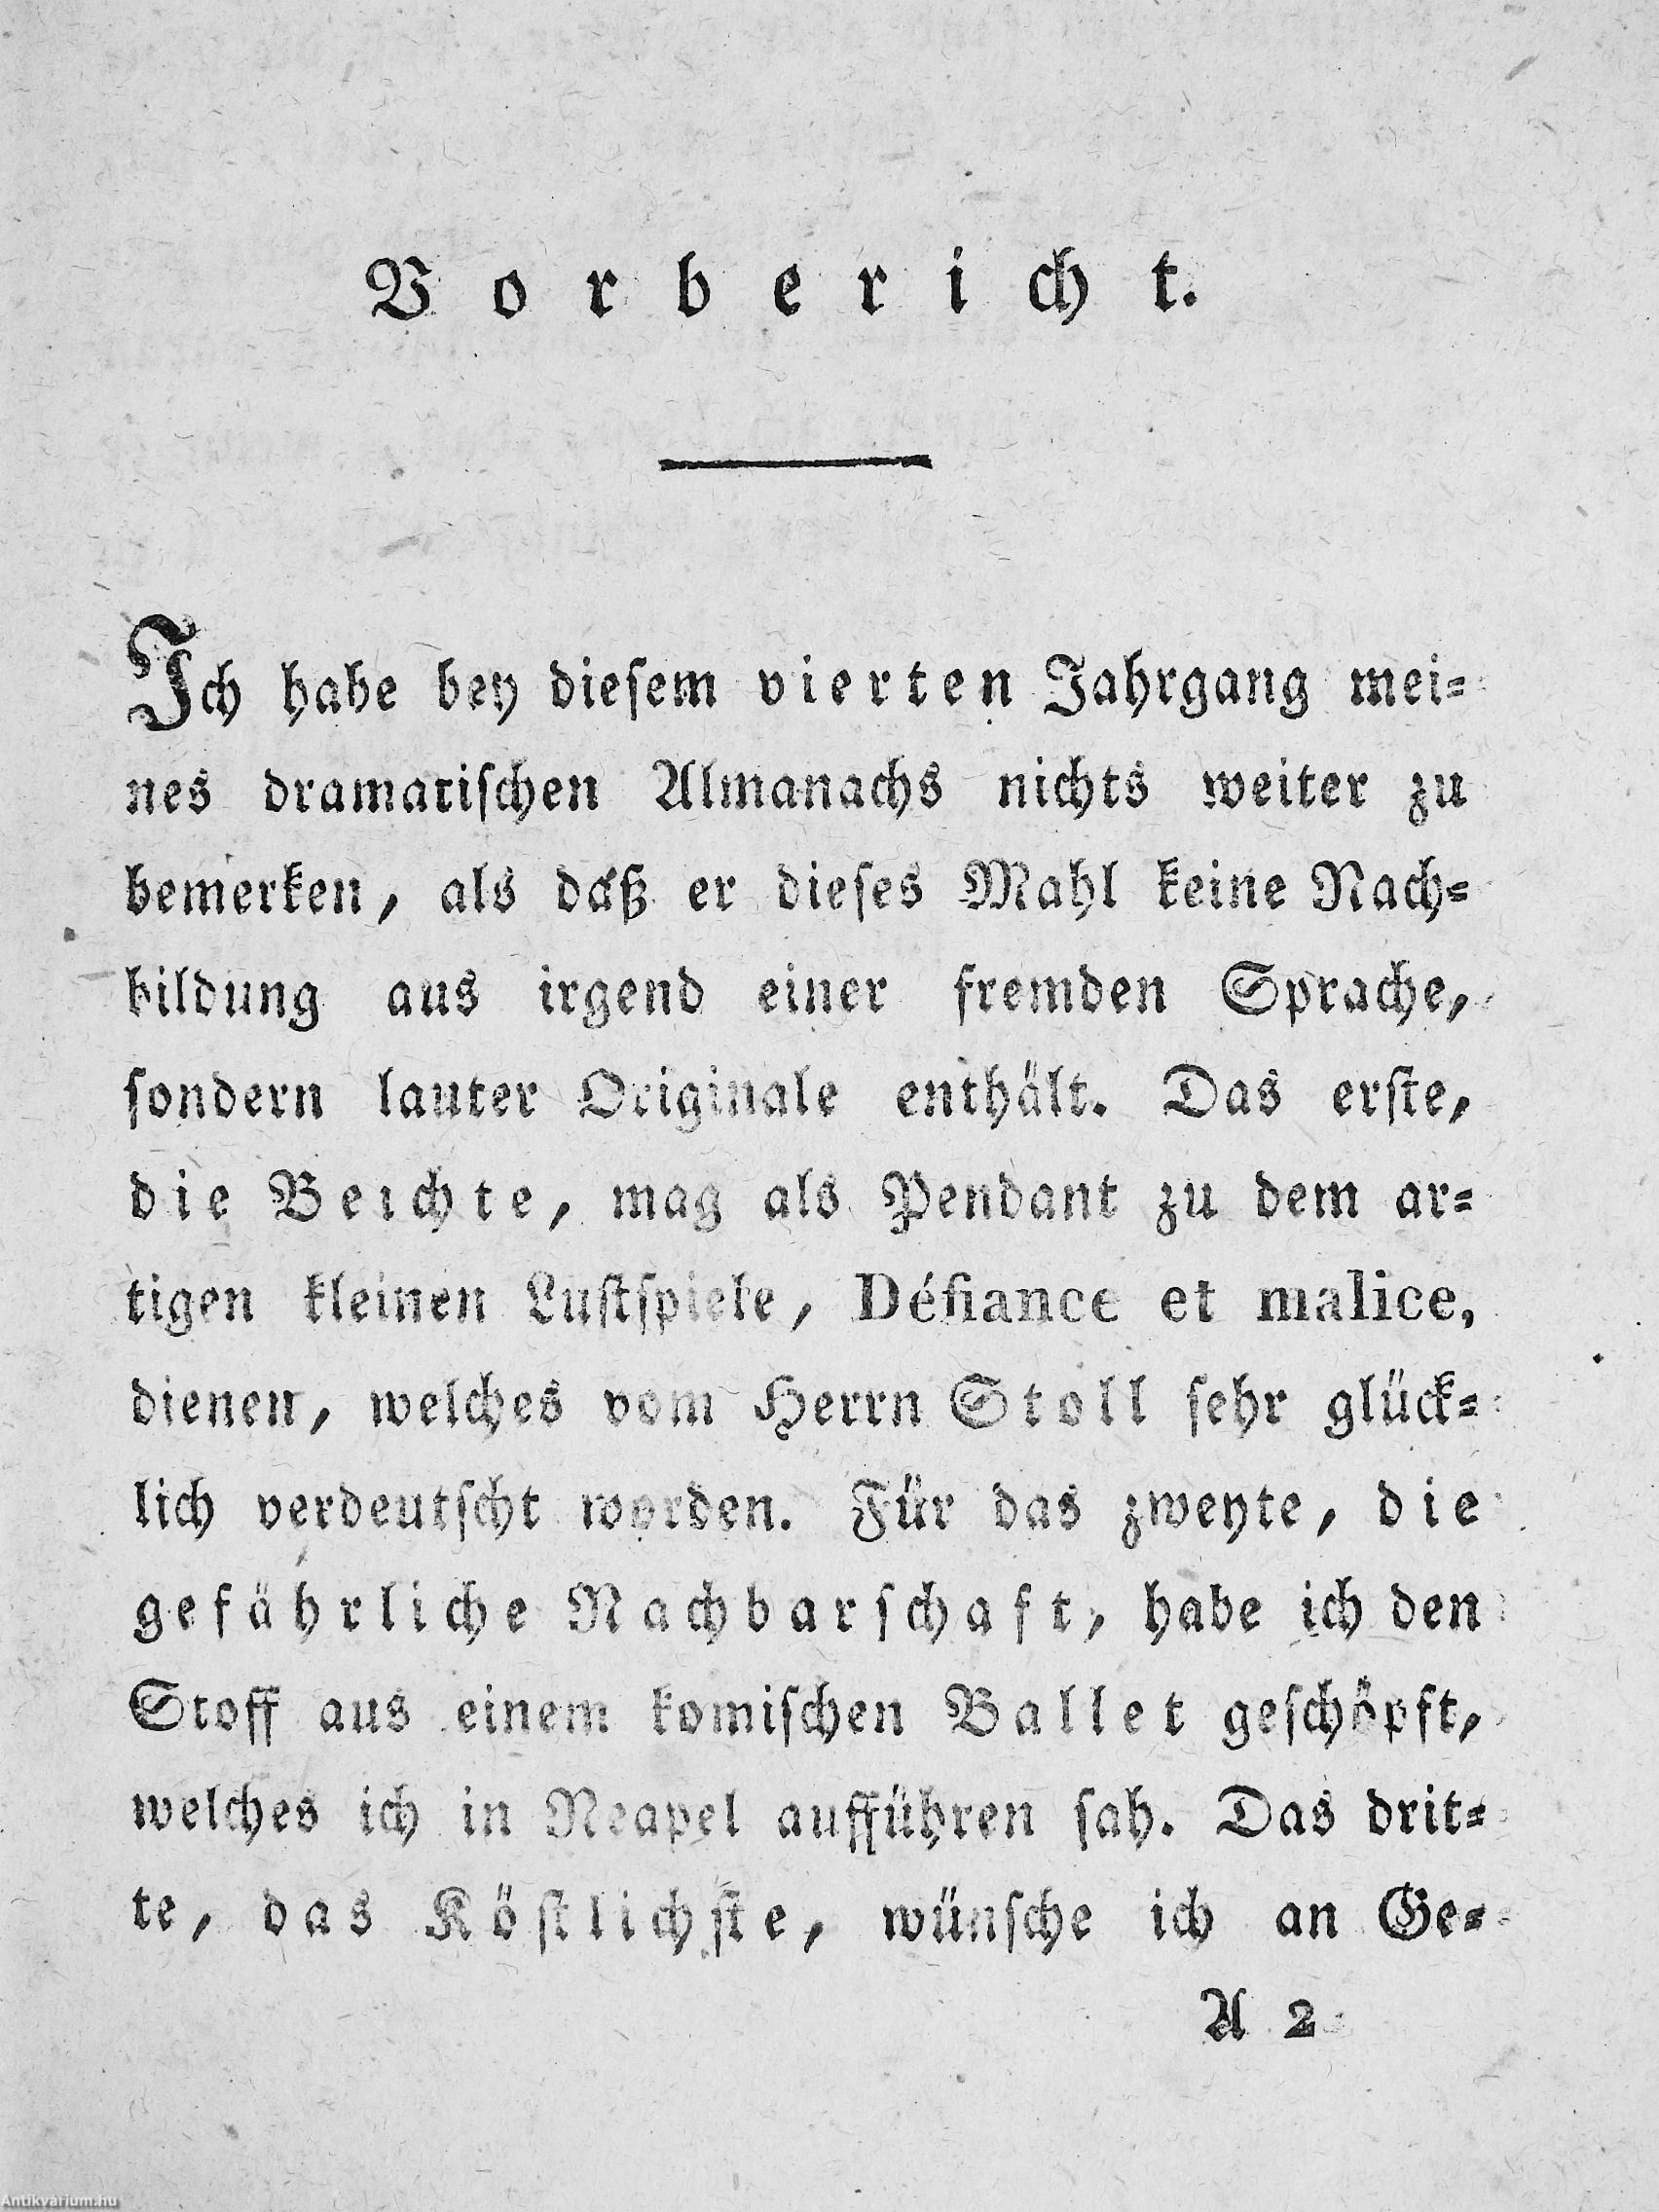 Vorbericht.
Ich habe bey diesem vierten Jahrgang mei-
nes dramatischen Almanachs nichts weiter zu
bemerken, als daß er dieses Mahl keine Nach-
bildung aus irgend einer fremden Sprache,
sondern lauter Originale enthält. Das erste,
die Beichte, mag als Pendant zu dem ar-
tigen kleinen Lustspiele, Défiance et malice,
dienen, welches vom Herrn Stoll sehr glück-
lich verdeutscht worden. Für das zweyte, die
gefährliche Nachbarschaft, habe ich den
Stoff aus einem komischen Ballet geschöpft,
welches ich in Neapel aufführen sah. Das drit-
te, das Köstlichste, wünsche ich an Ge-
A 2
Antikvarium.hu